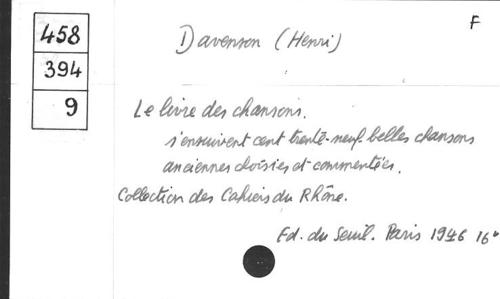 F
458
394
9
Davenson (Henri)
Le livre des chansons.
s'ensuivent cent trente-neuf belles chansons
anciennes choisies et commentées.
Collection des Cahiers du Rhône.
Ed. du Seuil. Paris 1946 16°